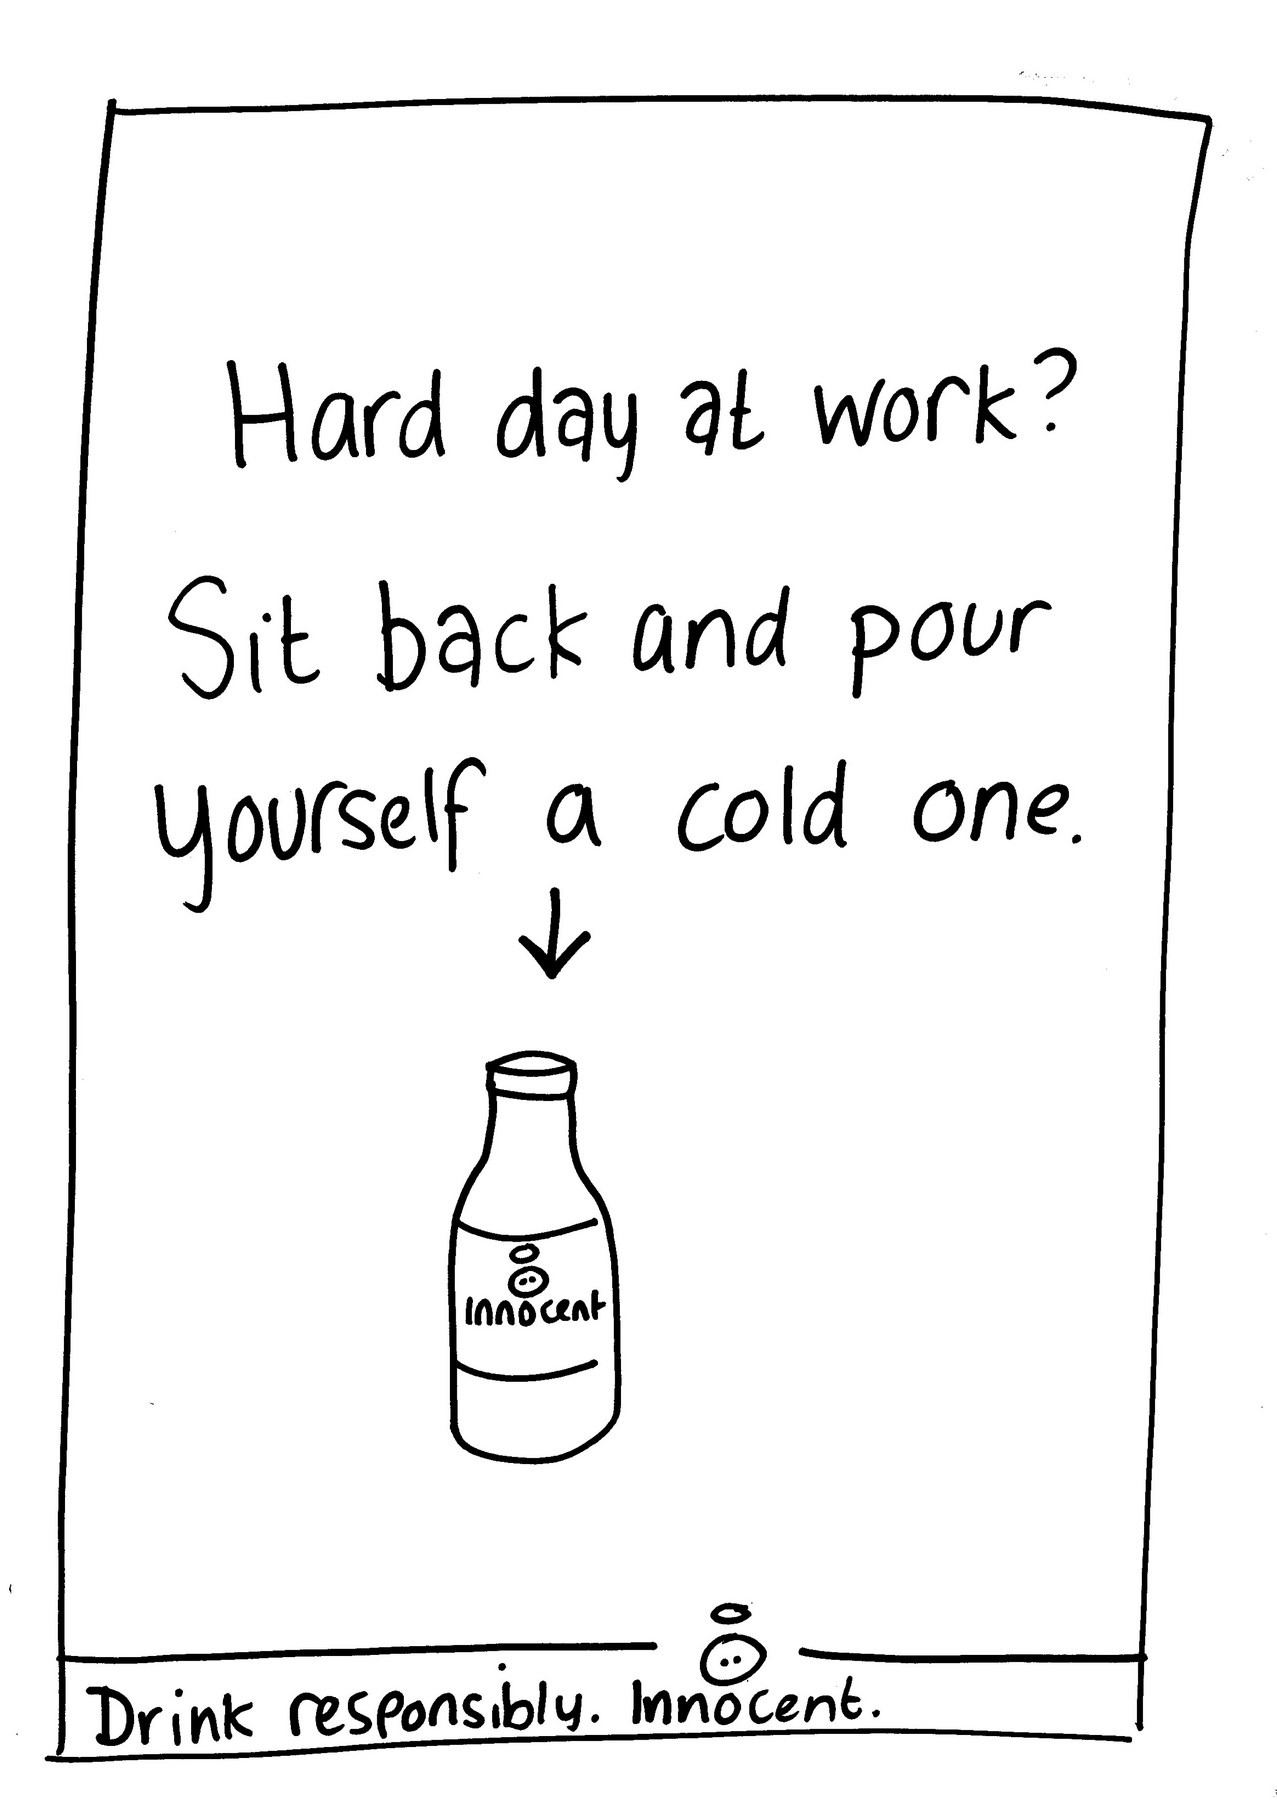 Hard day at work?
Sit back and pour
yourself a cold one.
Innocent
Drink responsibly. Innocent.